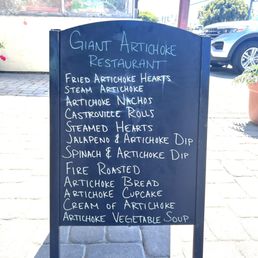 Giant Artichoke
Restaurant
Fried Artichoke Hearts
Steam Artichoke
Artichoke Nachos
Castroville Rolls
Steamed Hearts
Jalapeno & Artichoke Dip
Spinach & Artichoke Dip
Fire Roasted
Artichoke Bread
Artichoke Cupcake
Cream of Artichoke
Artichoke Vegetable Soup